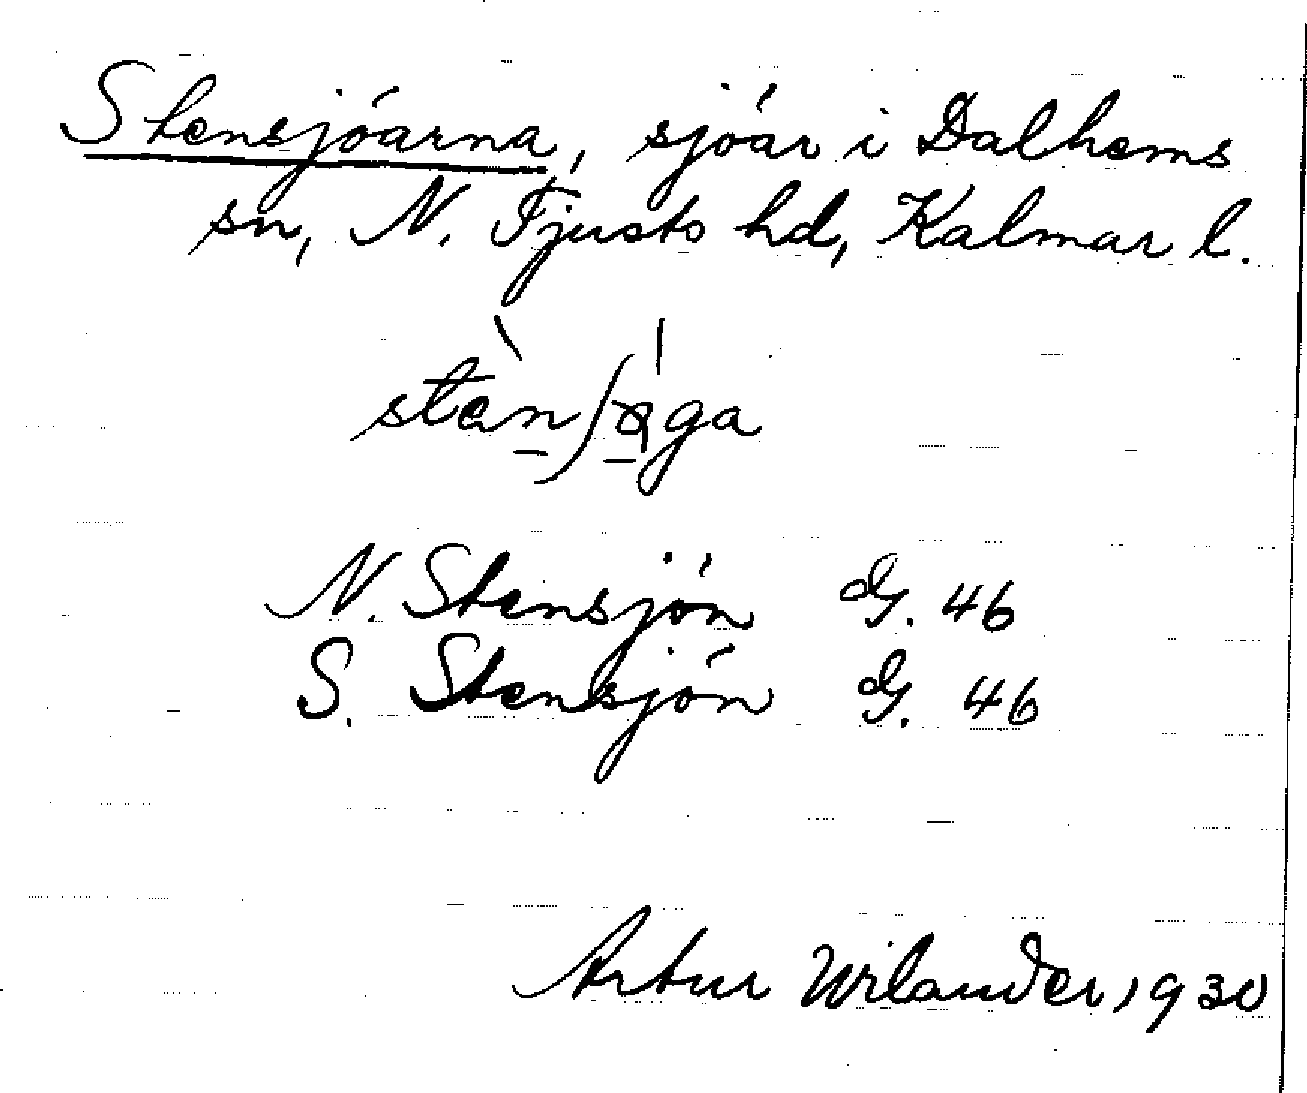 Stensjöarna, sjöar i Dalhems
sn, N. Tjusts hd, Kalmar l.
N. Stensjön G. 46
S. Stensjön G. 46
Artur Wilander, 1930